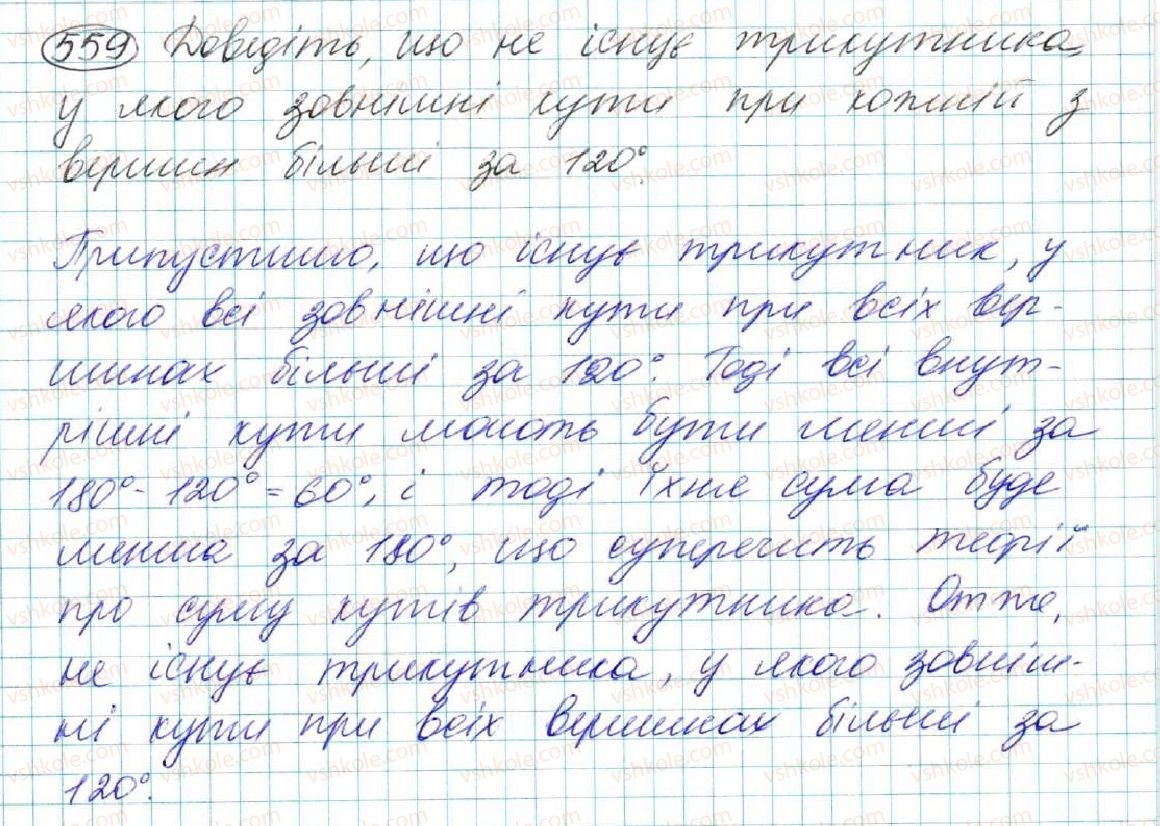 559 Доведіть, що не існує трикутника,
у якого зовнішні кути при кожній з
вершин більші за 120°.
Припустимо, що існує трикутник, у
якого всі зовнішні кути при всіх вер-
шинах більші за 120°. Тоді всі внут-
рішні кути мають бути менші за
180° - 120° = 60°, і тоді їхня сума буде
менша за 180°, що суперечить теорії
про суму кутів трикутника. Отже,
не існує трикутника, у якого зовніш-
ні кути при всіх вершинах більші за
120°.